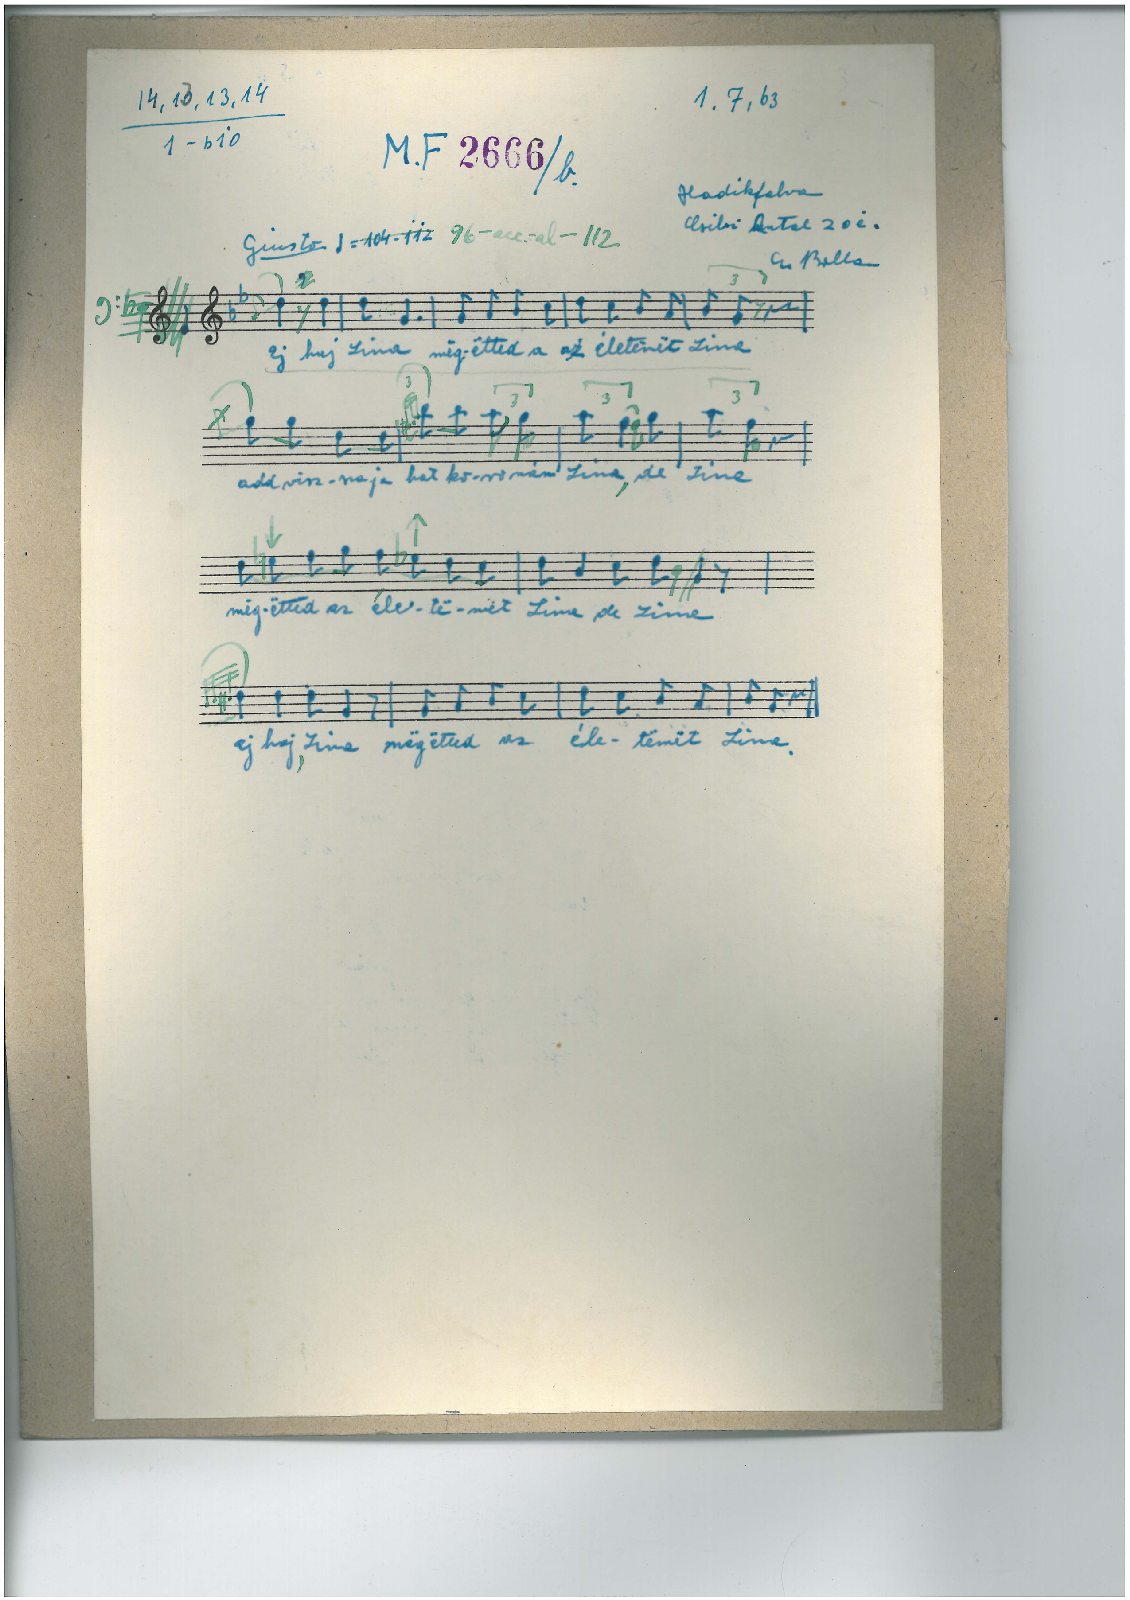 14, 13, 13, 14
1. 7, 63
1 - b10
M.F 2666/b.
Hadikfalva
Csibi Antal 20 é.
Giusto ♩ = 104-112 96 - acc. - al - 112
3
Ej haj Lina mëg-ëtted a az életëmët Lina
3 3 3 3
add visz-sza ja hat ko-ro nám Lina, de Lina
mëg-ëtted az éle-të-mët Lina de Lina
ej haj, Lina mëgëtted az éle-tëmët Lina.